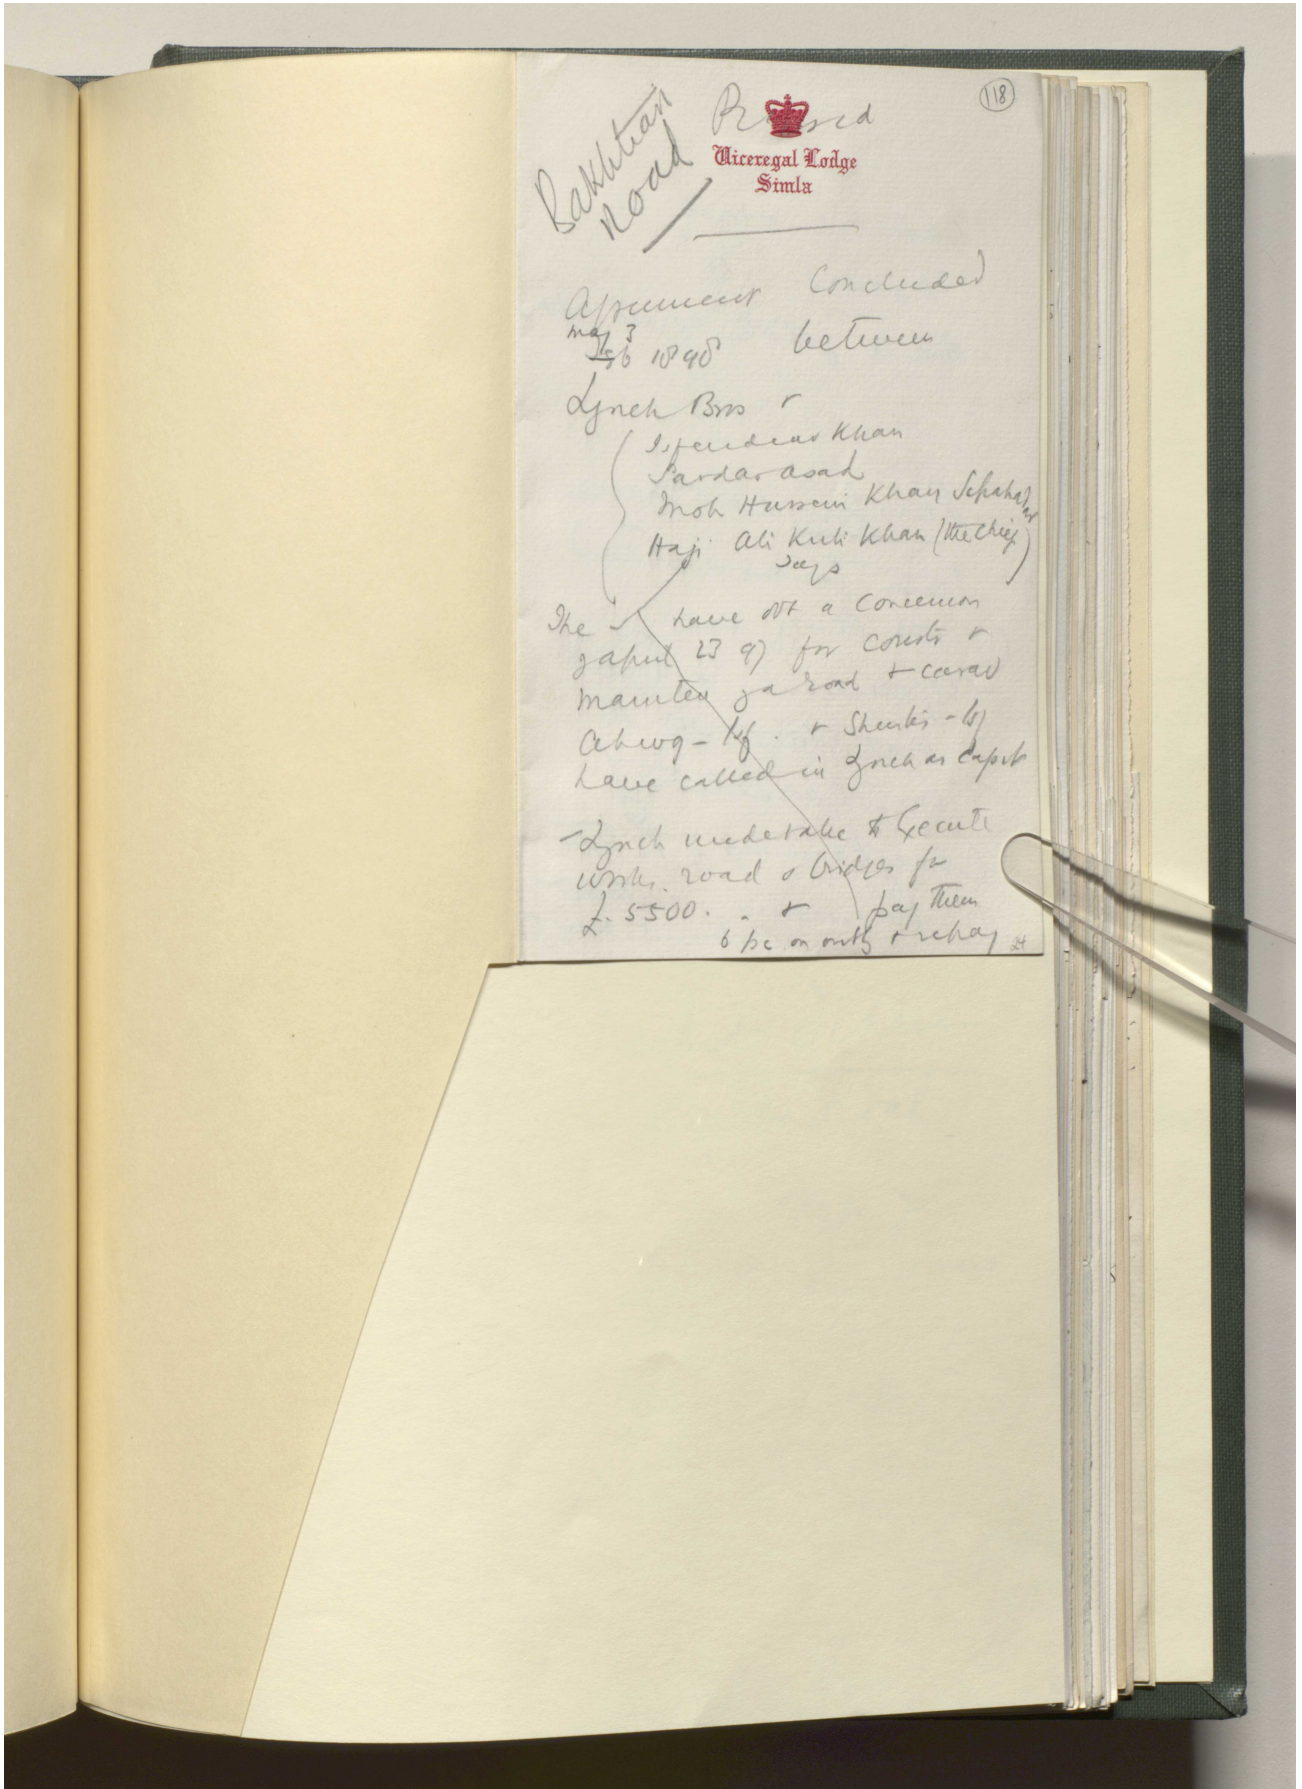 118
Bakhtiari
Road
Viceregal Lodge
Simla
Agreement Concluded
May 3
Feb 1898 between
Lynch Bros &
Isfendiar Khan
Sardar Asad
Moh Hussein Khan Sepahdar
Haji Ali Kuli Khan (the chief)
says
The have obt a Concession
April 23 97 for constr &
mainten of a road & carav
Ahwz - Isf. & Shuster - Isf
have called in Lynch as Capit
Lynch undertake to Execute
works. road & bridges for
£. 5500. & pay them
6 pc on outlay & repay
24